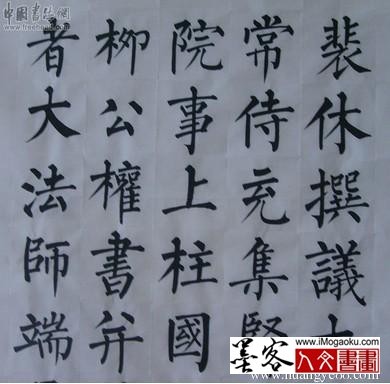 裴休撰議
常侍充集賢
院事上柱國
柳公權書并
者大法師端
中國書法網
www.freehead.com
www.iMogaoku.com
墨客
人文書畫
www.huangyeoo.com